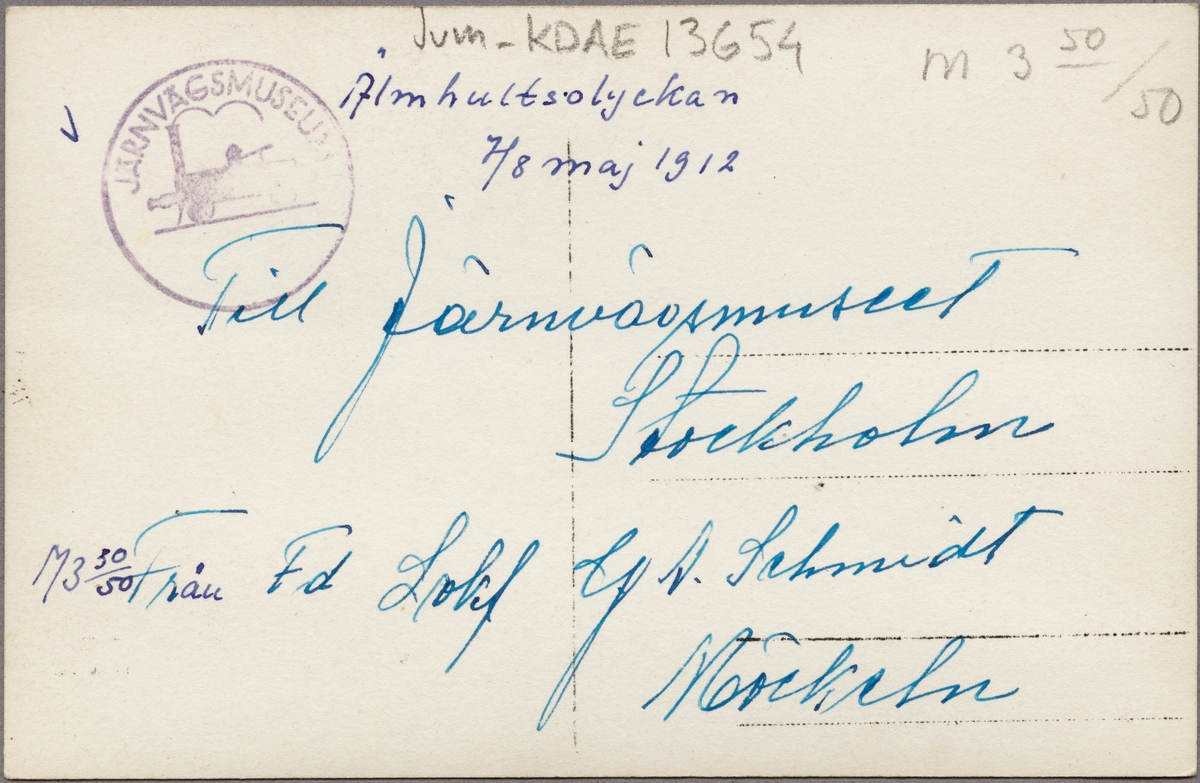 Jvm-KDAE 13654
M 3 50/50
JÄRNVÄGSMUSEUM
Älmhultsolyckan
7/8 maj 1912
Till Järnvägsmuseet
Stockholm
M3 50/50 Från Fd Lokf A. Schmidt
Möckeln